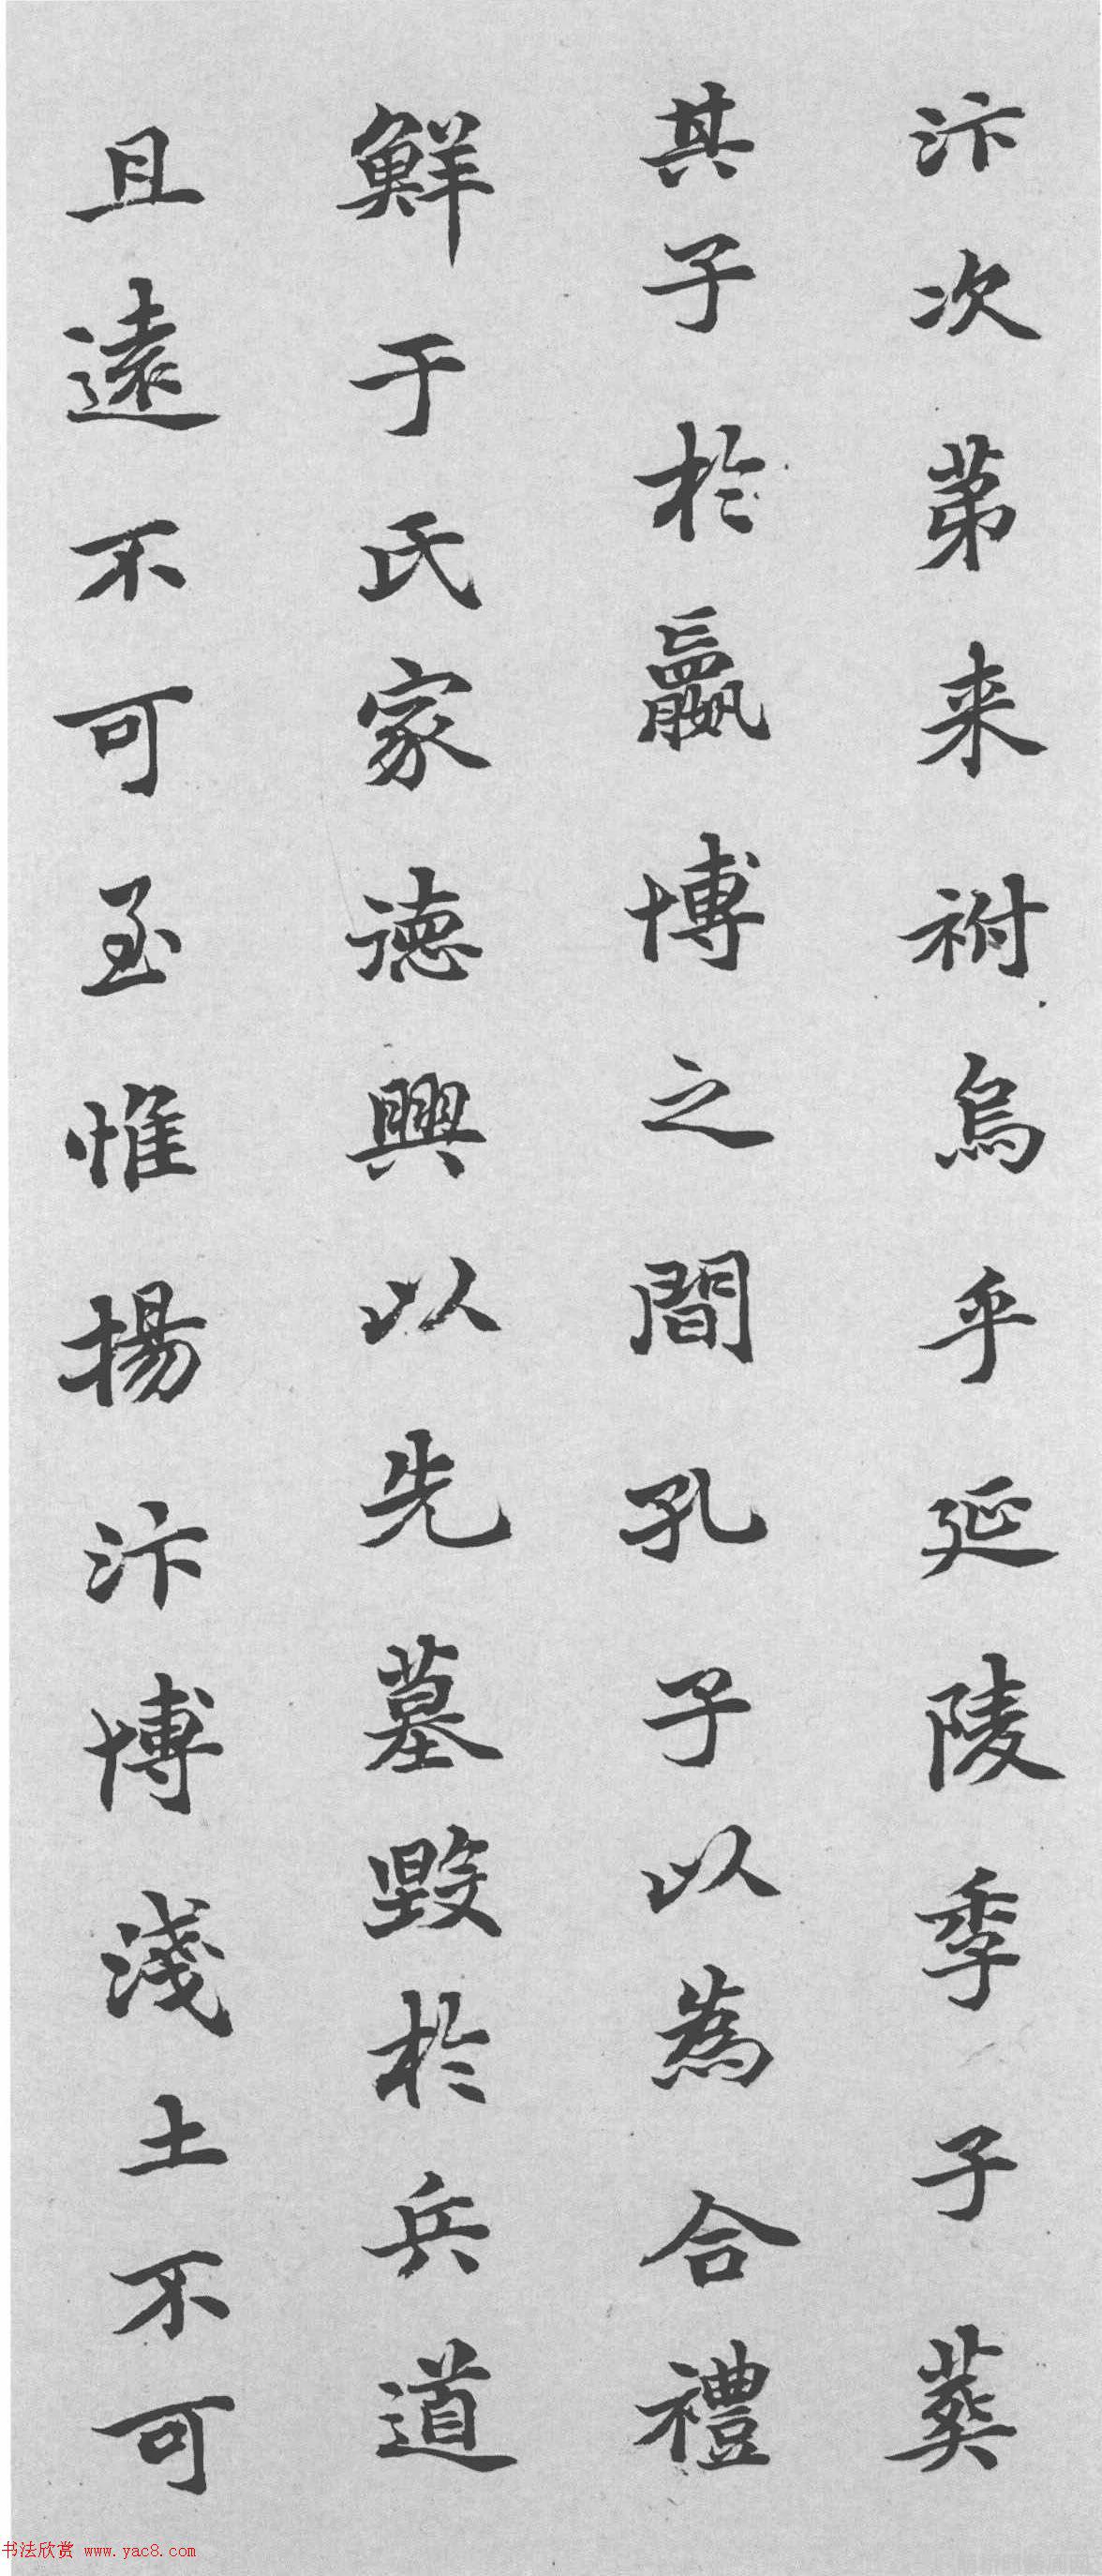 汴次苐来祔烏乎延陵季子葬
其子於嬴博之間孔子以為合禮
鮮于氏家徳興以先墓毀於兵道
且遠不可至惟揚汴博淺土不可
书法欣赏 www.yac8.com